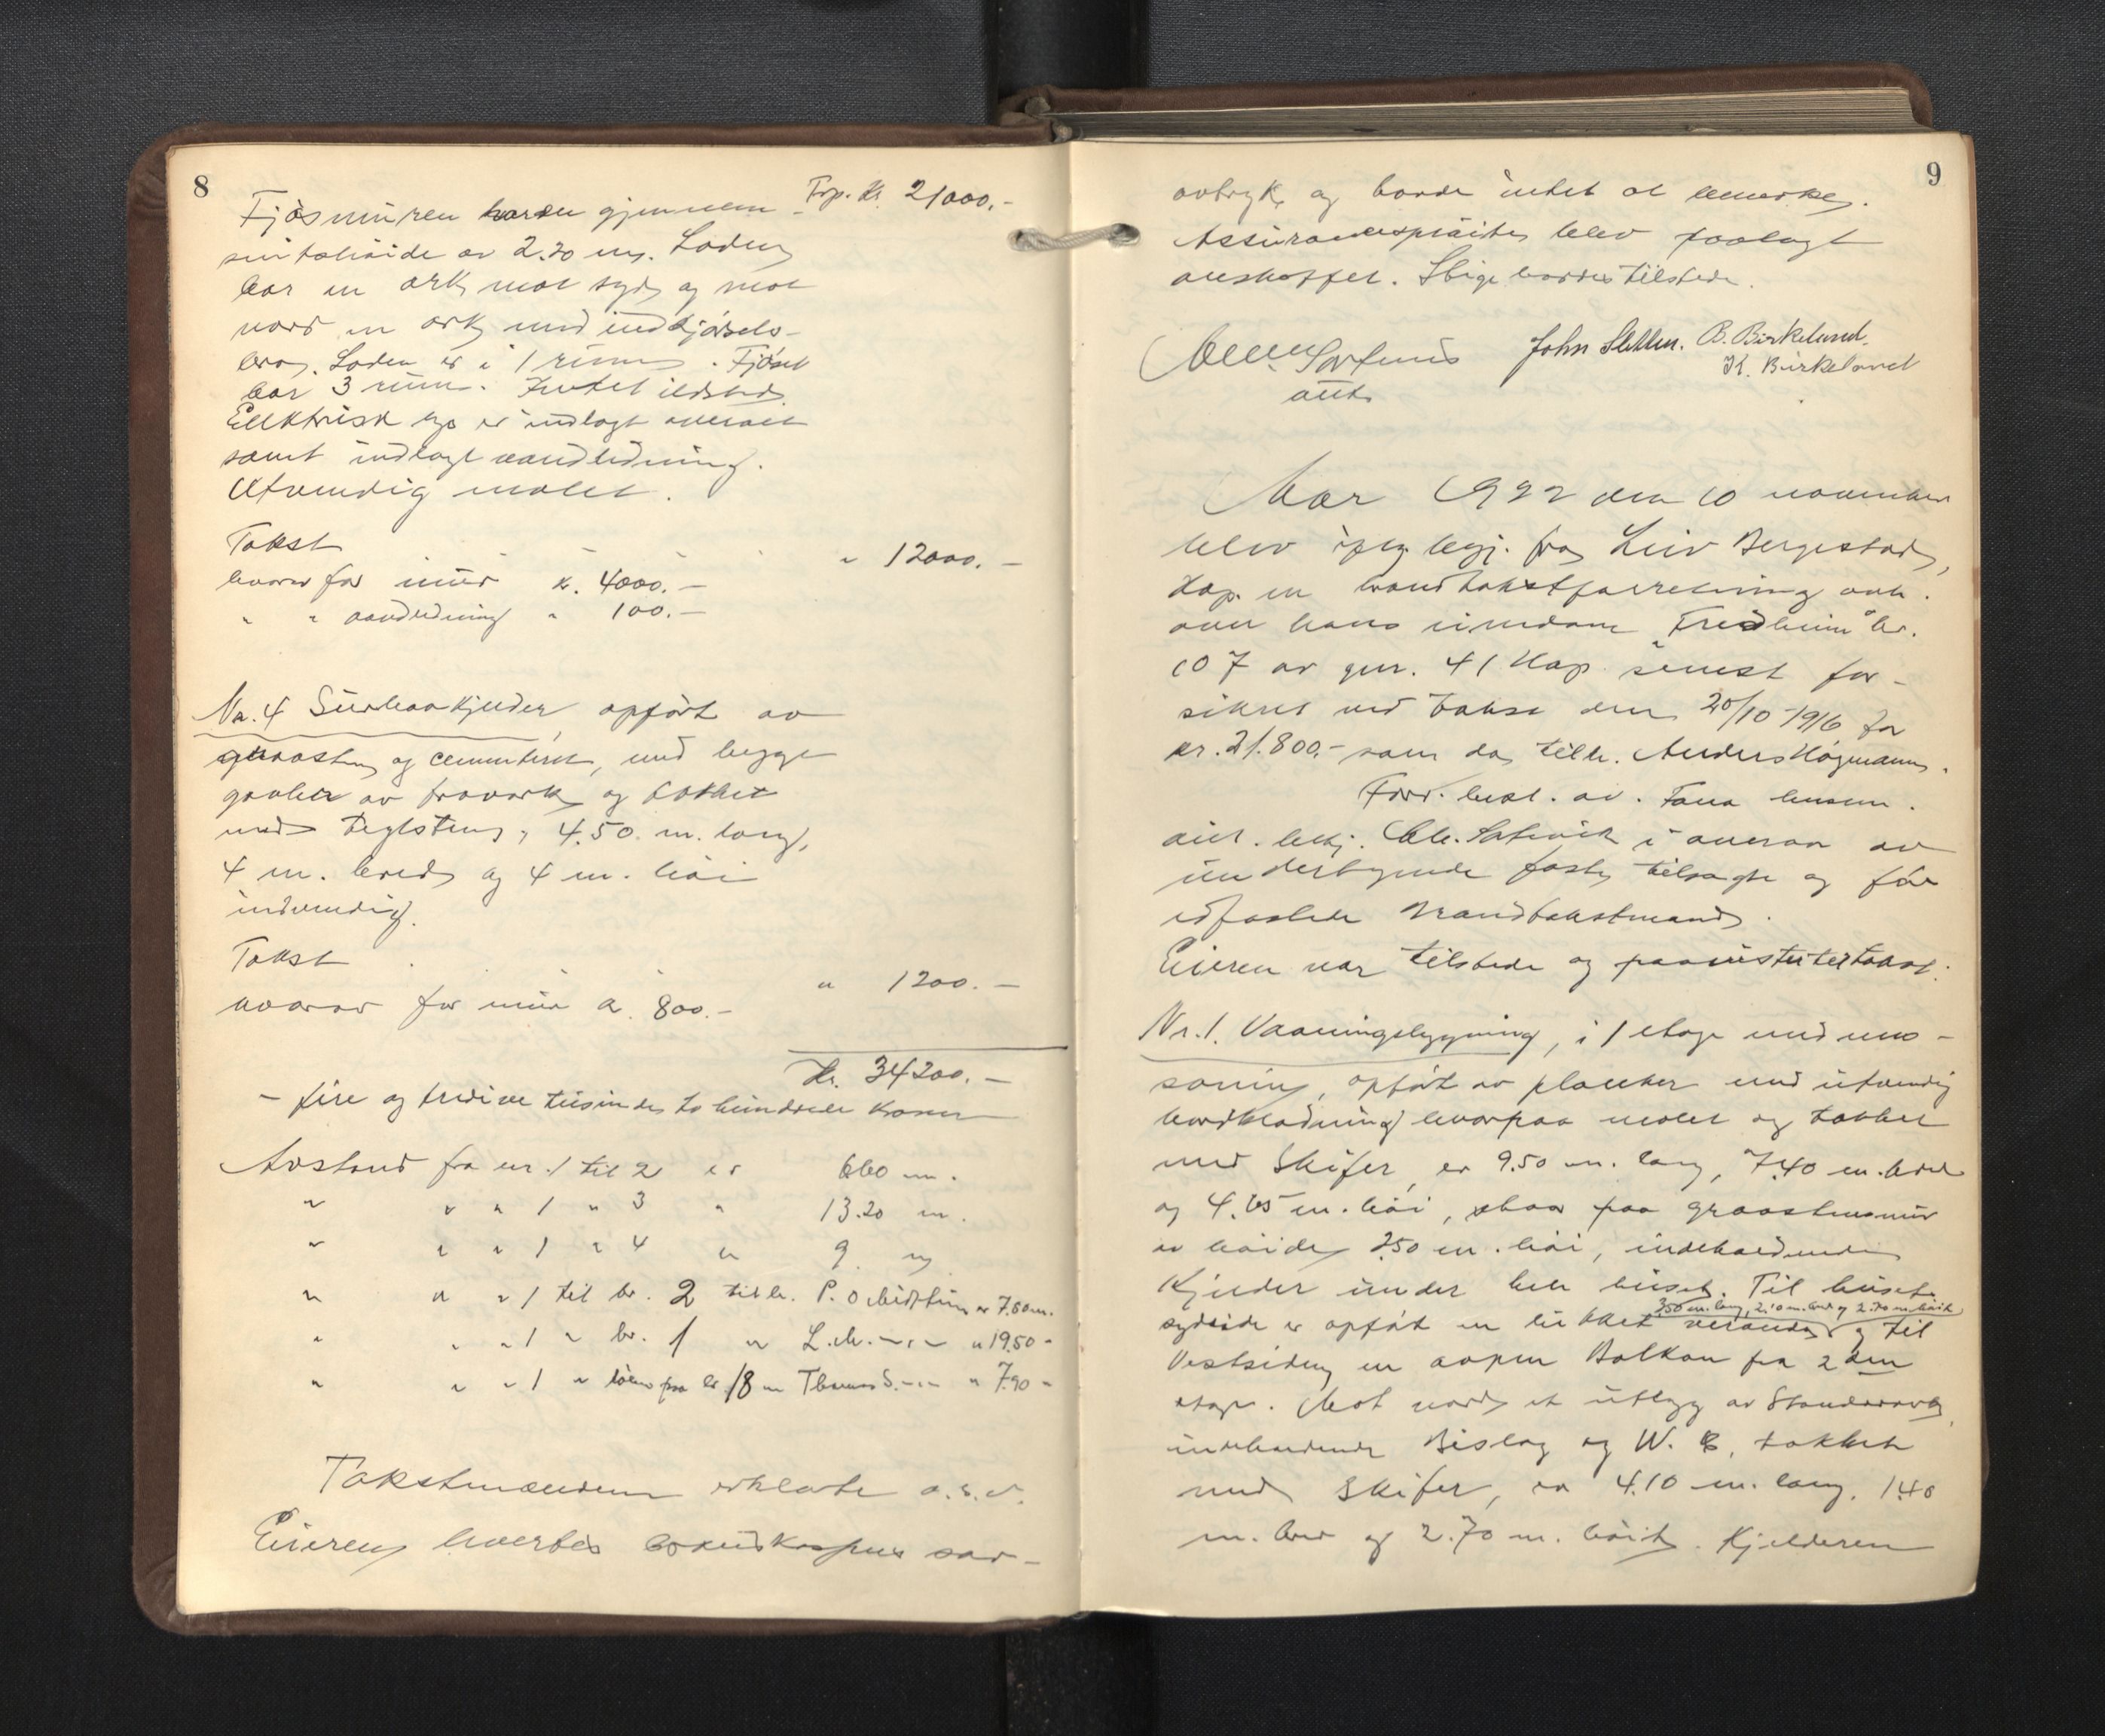 8
Fjøsmuren har en gjennem- Trp. Kr. 21000.-
snitshøide av 2.20 m. Laden
har en ark mot syd og mot
nord en ark med indkjørsels-
bro. Laden er i 1 rum. Fjøset
har 3 rum. Intet ildsted.
Elektrisk lys er indlagt overalt
samt indlagt vandledning.
Utvendig malet.
Takst " 12000.-
hvorav for mur kr. 4000.-
" " vandledning " 100.-
Nr. 4 Surhaakjelder, opført av
graasten og cementert, med begge
gavler av travark og tækket
med teglsten, 4.50 m. lang,
4 m. bred og 4 m. høi
indvendig.
Takst " 1200.-
hvorav for mur kr. 800.-
Kr. 34200.-
- fire og tredive tusinde to hundrede kroner
Avstand fra nr. 1 til 2 er 660 m.
" " " 1 " 3 " 13.20 m.
" " " 1 " 4 " 9 m
" " " 1 til br. 2 tilh. P. O. er 7.60 m.
" " " 1 " br. 1 " L. M. -"- " 19.50 -
" " " 1 " løen paa br. 18 " Thomas S. -"- " 7.90 -
Takstmændene erklærte o.s.v.
Eieren hvertes sav-
9
avtryk og havde intet at bemerke.
Assurancespræite blev paalagt
anskaffet. Stige havdes tilstede.
John Sletten. B. Birkeland.
K. Birkeland
aut.
Aar 1922 den 10 november
blev ifølg. begj. fra Leiv Bergestad,
Hop. en brandtakstforretning avh.
over hans eiendom "Fredheim" br.
107 av gnr. 41 Hop senest for-
sikret ved takst den 20/10-1916 for
kr. 21.800.- som da tilh. Anders Hagmann.
Forr. best. av. Fana lensm.
aut. i overvær av
undertegnede faste tilsagte og før
edfæstede brandtakstmænd.
Eieren var tilstede og paaviste takst.
Nr. 1. Vaaningsbygning, i 1 etage med man-
saring, opført av planker med utvendig
bordklædning hvorpaa malet og tækket
med Skifer, er 9.50 m. lang, 7.40 m. bred
og 4.65 m. høi, staar paa graastensmur
av høide 2.50 m. høi, indeholdende
Kjelder under hele huset. Til husets
3.50 m. lang, 2.10 m. bred og 2.70 m. høit
sydside er opført en lukket veranda og til
Vestsiden en aapen Balkon fra 2den
etage. Mot nord et utbygg av Standerverk
indeholdende Bislag og W. C, tækket
med Skifer, er 4.10 m. lang, 1.40
m. bred og 2.70 m. høit. Kjelderen